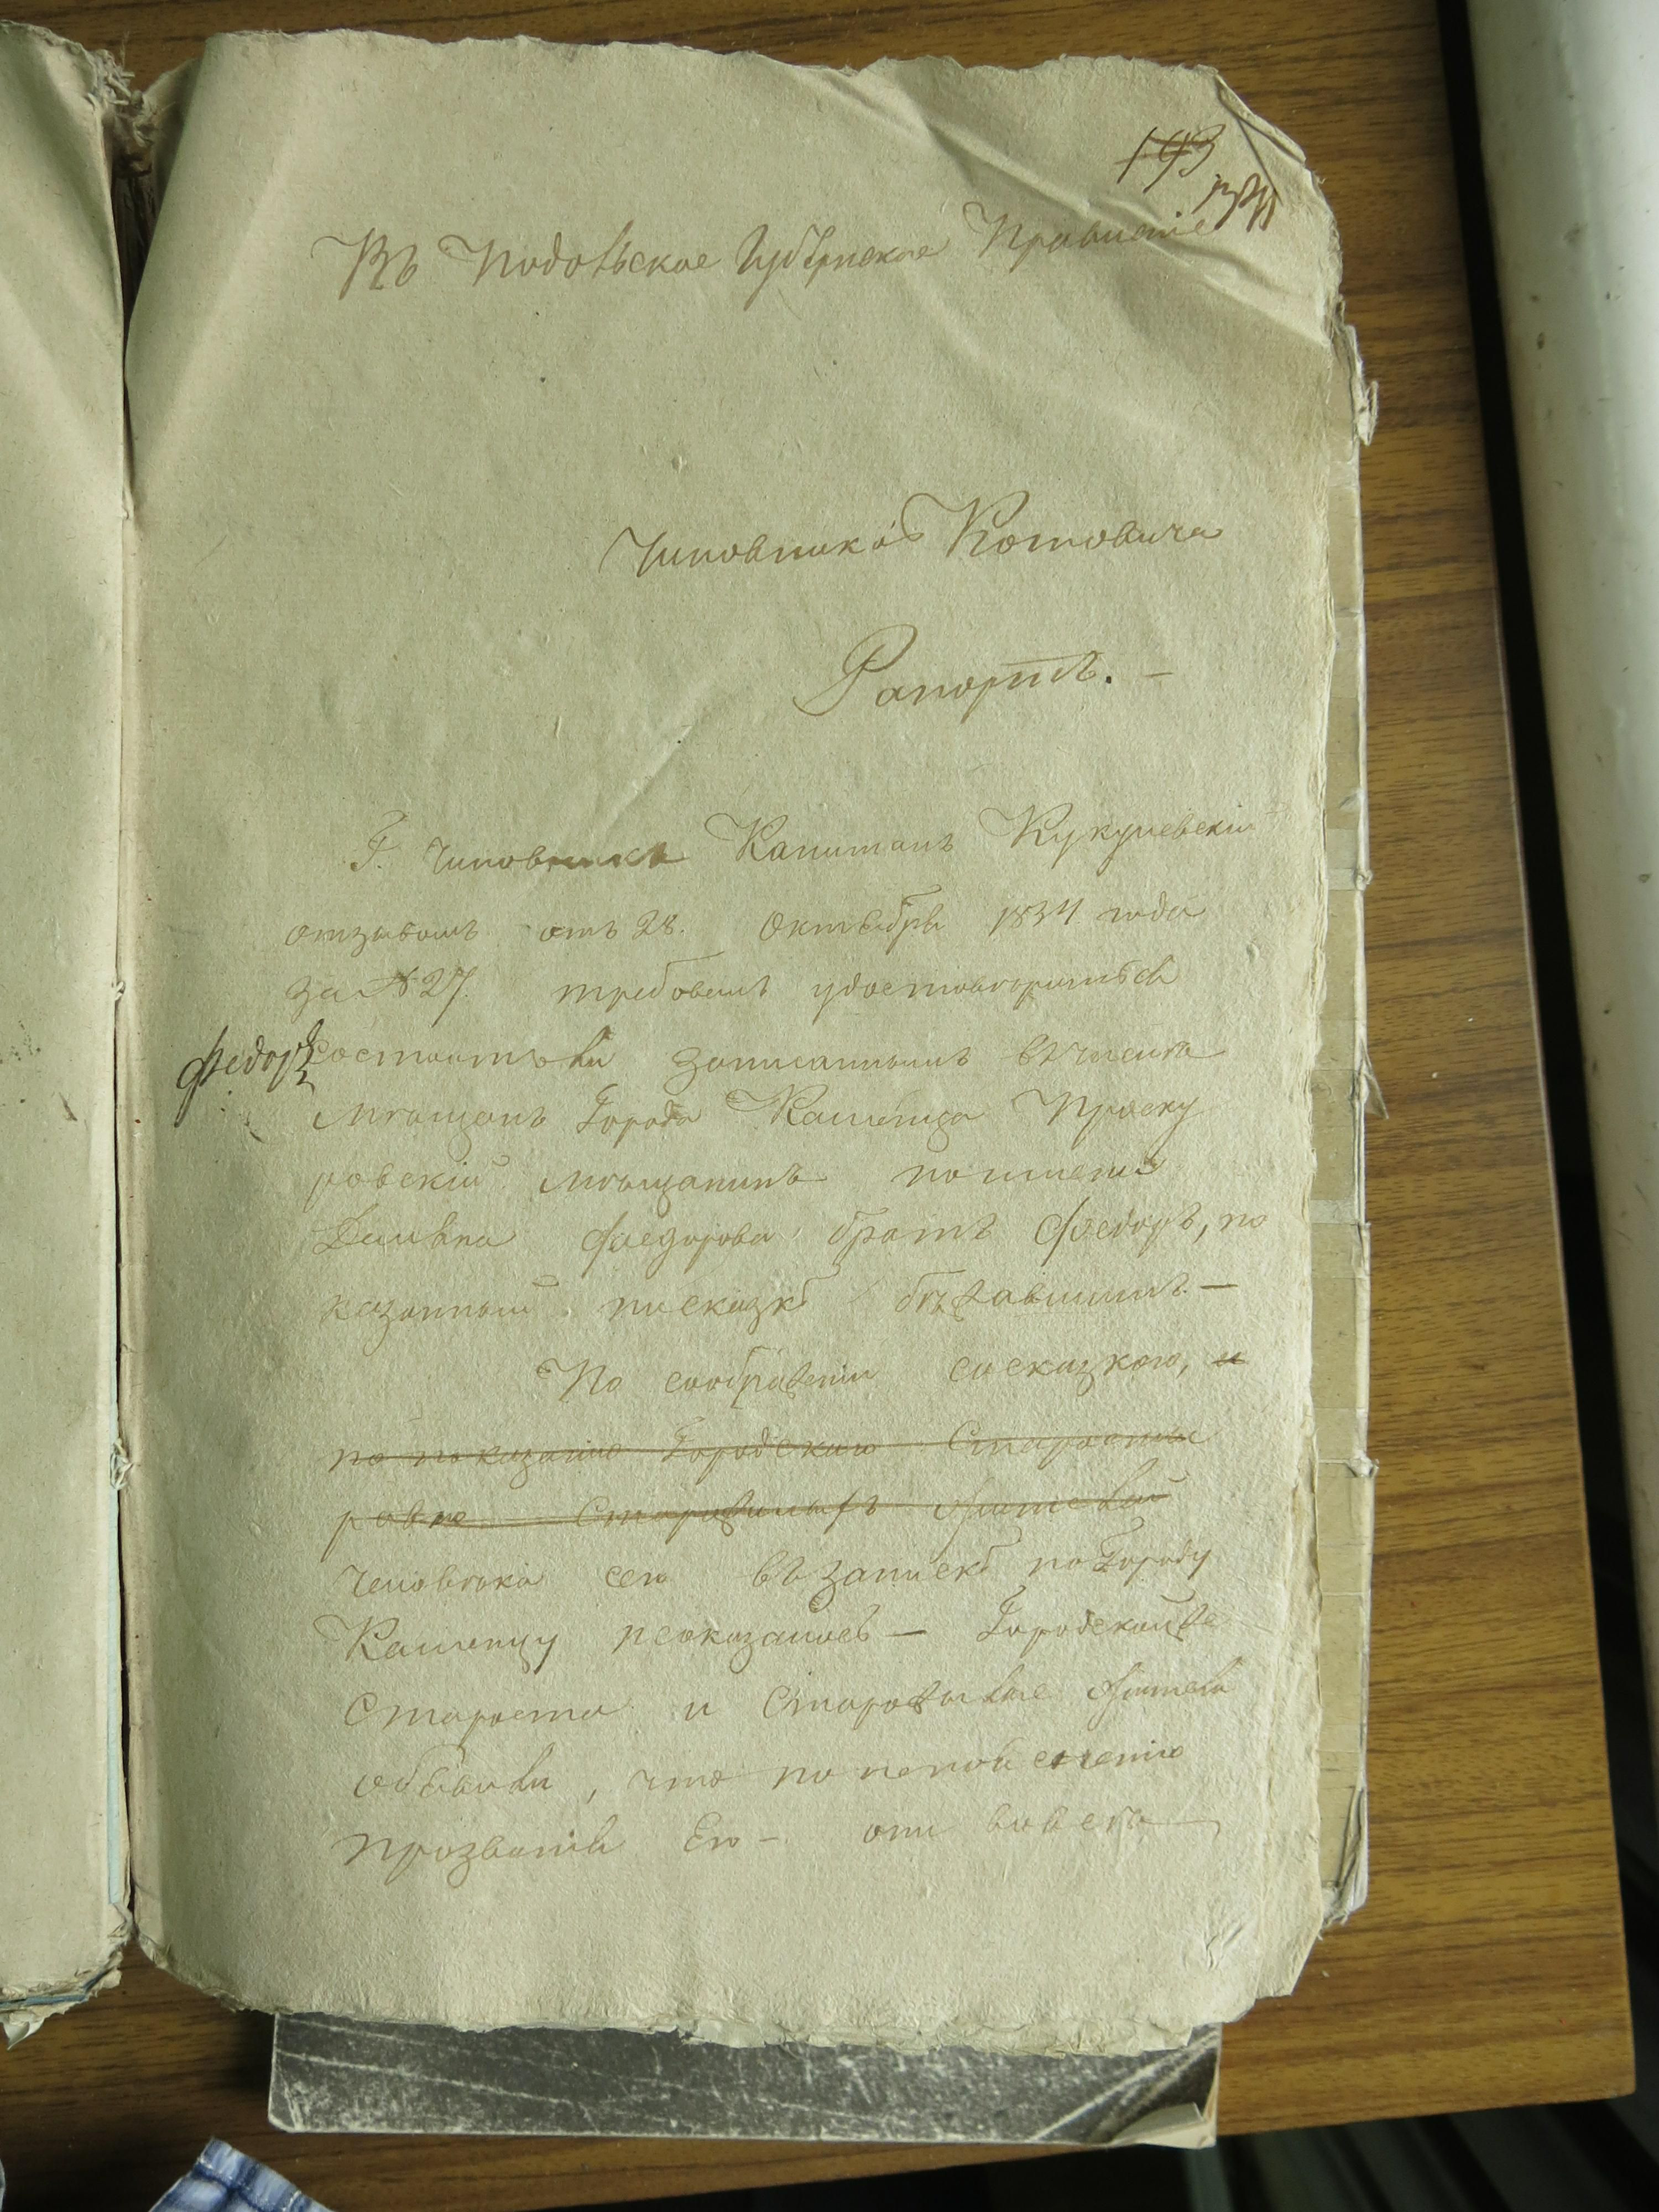 193
Въ Подольское Губернское Правленіе
Чиновника Котовича
Рапортъ. —
Г. Чиновникъ Капитанъ Кукулевскій
отзывомъ отъ 28. Октября 1834 года
за № 27. требовалъ удостовориться
Федоръ
состоитъ ли записаннымъ въ числѣ
мѣщанъ Города Каменца Проску
ровскій мѣщанинъ по имени
Федорова братъ Федоръ, по
казанный по сказкѣ бѣжавшимъ. —
По соображеніи со сказкою, и
по показанію Городскаго Старосты
равно Старожилыхъ жителей
человѣка сего въ запискѣ по Городу
Каменцу неоказалось — Городской же
Староста и Старожилые жители
объявили, что по непоясненію
прозванія Его — они вовсе